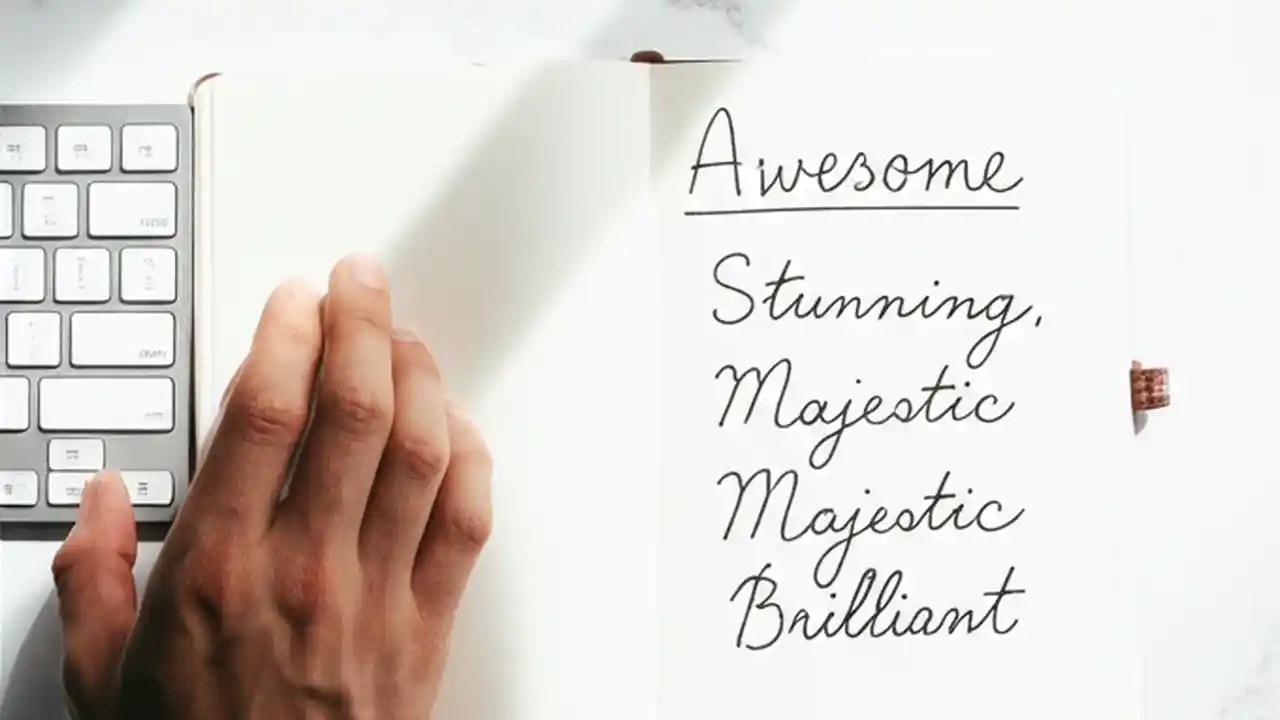 Awesome
Stunning,
Majestic
Majestic
Brilliant